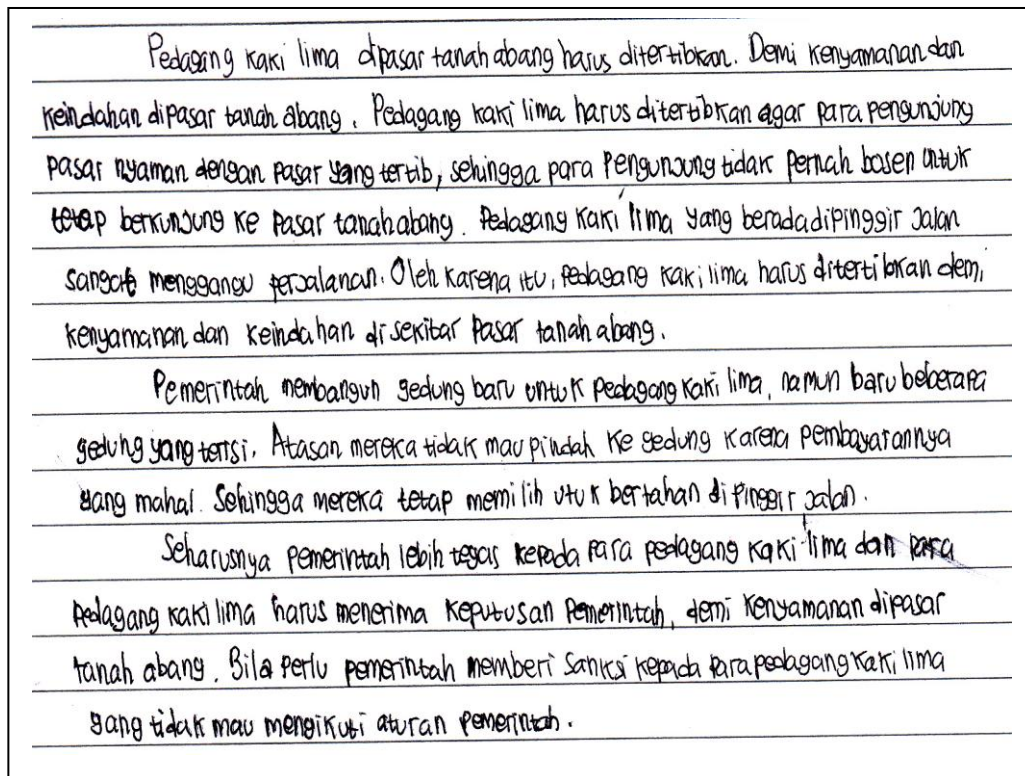 Pedagang kaki lima dipasar tanah abang harus ditertibkan. Demi kenyamanan dan
keindahan dipasar tanah abang. Pedagang kaki lima harus ditertibkan agar para pengunjung
pasar nyaman dengan pasar yang tertib, sehingga para pengunjung tidak pernah bosen untuk
tetap berkunjung ke pasar tanah abang. Pedagang kaki lima yang berada dipinggir jalan
sangat menggangu perjalanan. Oleh karena itu, pedagang kaki lima harus ditertibkan demi
kenyamanan dan keindahan di sekitar pasar tanah abang.
Pemerintah membangun gedung baru untuk pedagang kaki lima, namun baru beberapa
gedung yang terisi. Atasan mereka tidak mau pindah ke gedung karena pembayarannya
yang mahal. Sehingga mereka tetap memilih utuk bertahan di pinggir jalan.
Seharusnya pemerintah lebih tegas kepada para pedagang kaki lima dan para
pedagang kaki lima harus menerima keputusan pemerintah, demi kenyamanan dipasar
tanah abang. Bila perlu pemerintah memberi sanksi kepada para pedagang kaki lima
yang tidak mau mengikuti aturan pemerintah.